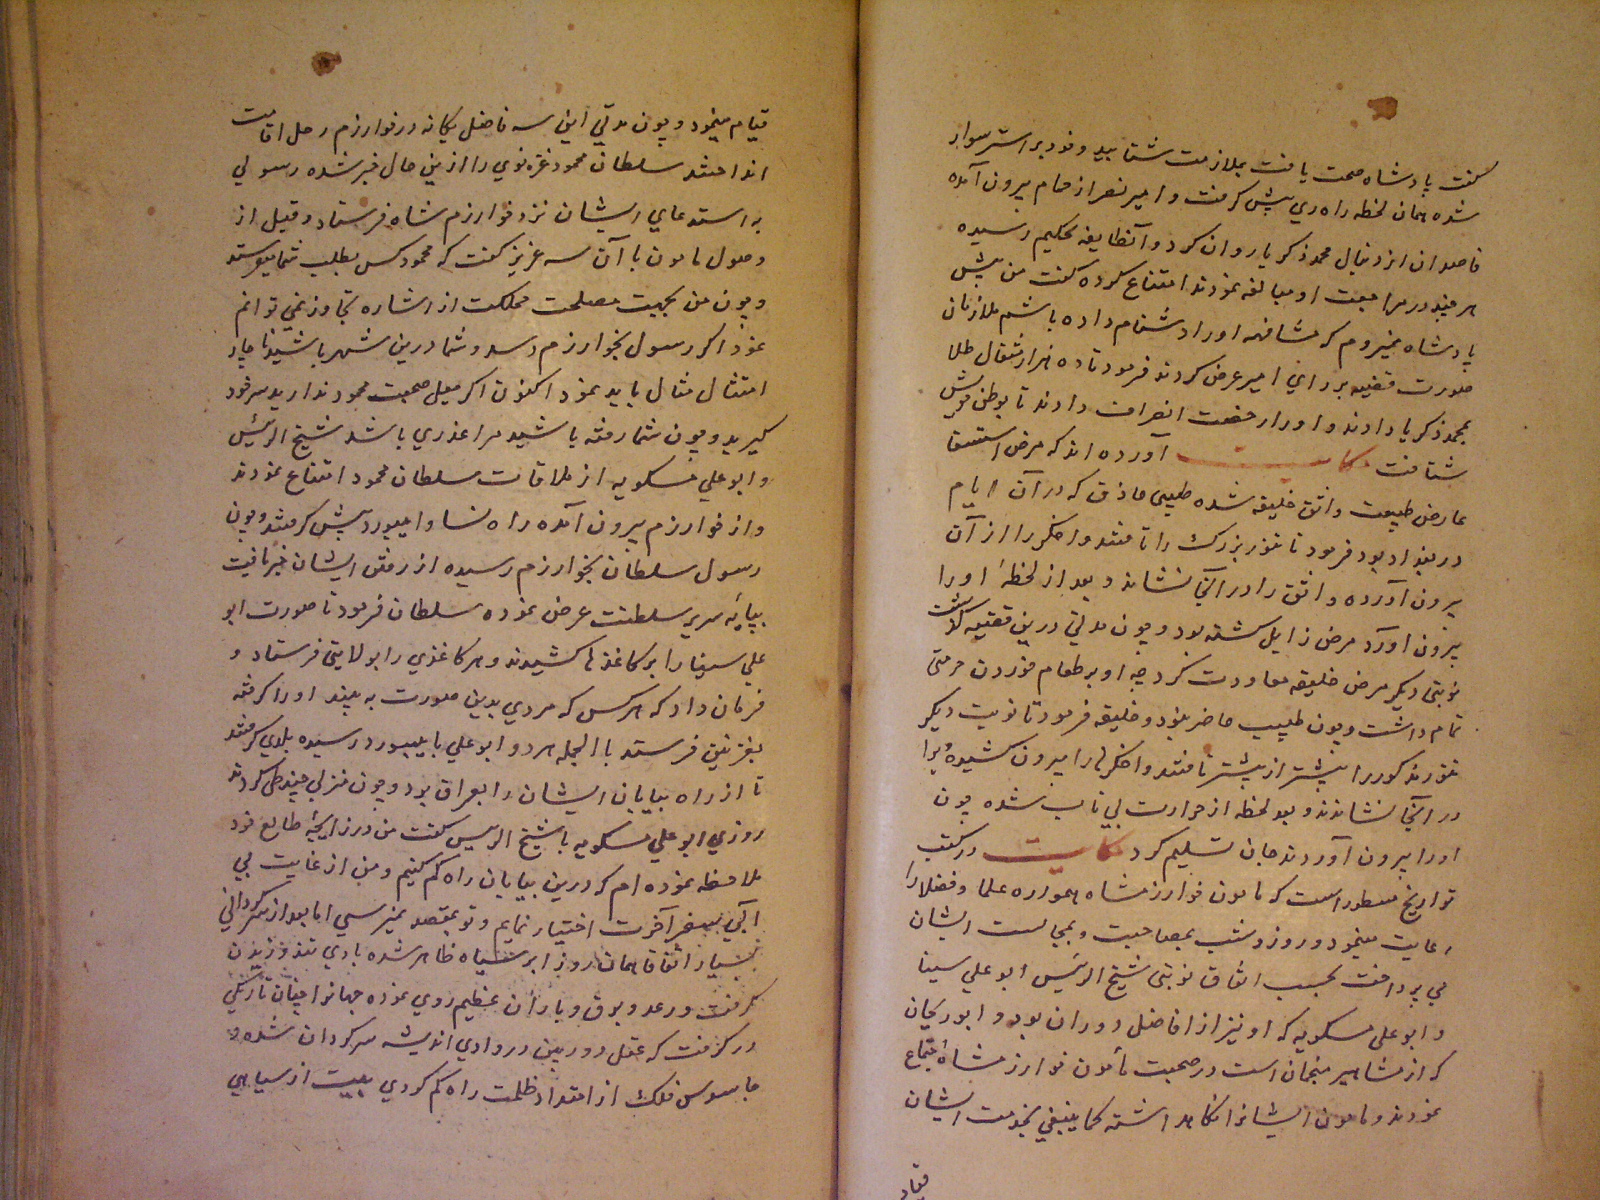 گفت پادشاه صحت یافت بملازمت شتابید و خود بر استر سوار
شده همان لحظه راه ری پیش کرفت و امیر نصر از حمام بیرون آمده
قاصدان از دنبال محمد زکریا روان کرد و آنطایفه بحکیم رسیده
هر چند در مراجعت او مبالغه نمودند امتناع کرده گفت من پیش
پادشاه نمیروم که مشافهه او را دشنام داده باشم ملازمان
صورت قضیه بر رای امیر عرض کردند فرمود تا ده هزار مثقال طلا
بمحمد زکریا دادند و او را رخصت انصراف دادند تا بوطن خویش
شتافت حکایت آورده اند که مرض استسقا
عارض طبیعت واثق خلیفه شده طبیبی حاذق که در آن ایام
در بغداد بود فرمود تا تنور بزرک را تافتند و اخکر را از آن
بیرون آورده واثق را در آنجا نشاند و بعد از لحظهٔ او را
بیرون آورد مرض زایل کشته بود و چون مدتی درین قضیه کذشت
نوبتی دیکر مرض خلیفه معاودت کرد چه او بر طعام خوردن حرصی
تمام داشت و چون طبیب حاضر نبود و خلیفه فرمود تا نوبت دیکر
تنور مذکور را بیشتر از پیشتر تافتند و اخکرها را بیرون کشیده ویرا
در آنجا نشاندند و بعد لحظه از حرارت بی تاب شده چون
او را بیرون آوردند جان تسلیم کرد حکایت در کتب
تواریخ مسطور است که مامون خوارزمشاه همواره علما و فضلا را
رعایت مینمود و روز و شب بمصاحبت و مجالست ایشان
می پرداخت بحسب اتفاق نوبتی شیخ الرئیس ابو علی سینا
و ابو علی مسکویه که او نیز از افاضل دوران بود و ابو ریحان
که از مشاهیر منجمان است در صحبت مأمون خوارزمشاه اجتماع
نمودند و مامون ایشانرا نکاهداشته کما ینبغی بخدمت ایشان
قیام مینمود و چون مدتی این سه فاضل یکانه در خوارزم رحل اقامت
انداختند سلطان محمود غزنوی را ازین حال خبر شده رسولی
به استدعای ایشان نزد خوارزم شاه فرستاد و قبل از
وصول مامون با آن سه عزیز گفت که محمود کس بطلب شما میفرستد
و چون من بجهت مصلحت مملکت از اشاره تجاوز نمی توانم
نمود اکر رسول بخوارزم رسد و شما درین شهر باشید ناچار
امتثال مثال باید نمود اکنون اکر میل صحبت محمود ندارید سر خود
کیرید و چون شما رفته باشید مرا عذری باشد شیخ الرئیس
و ابو علی مسکویه از ملاقات سلطان محمود امتناع نمودند
و از خوارزم بیرون آمده راه نسا و ابیورد پیش کرفتند و چون
رسول سلطان بخوارزم رسیده از رفتن ایشان خبر یافت
بپایه سریر سلطنت عرض نموده سلطان فرمود تا صورت ابو
علی سینا را بر کاغذها کشیدند و هر کاغذی را بولایتی فرستاد و
فرمان داد که هر کس که مردی بدین صورت به بیند او را کرفته
بغزنین فرستد با الجمله هر دو ابو علی با بیورد رسیده بلدی کرفتند
تا از راه بیابان ایشان را بعراق برد و چون منزلی چند طی کردند
روزی ابو علی مسکویه با شیخ الرئیس گفت من درزایجه طالع خود
ملاحظه نموده ام که درین بیابان راه کم کنیم و من از غایت بی
آبی سفر آخرت اختیار نمایم و تو بمقصد میرسی اما بعد از سرکردانی
بسیار اتفاقا همان روز ابر سیاه ظاهر شده بادی تند وزیدن
کرفت و رعد و برق و باران عظیم روی نموده جهانرا چنان تاریکی
در کرفت که عقل دوربین در وادی اندیشه سرکردان شد و
جاسوس فلک از امتداد ظلمت راه کم کردی بیت از سیاهی